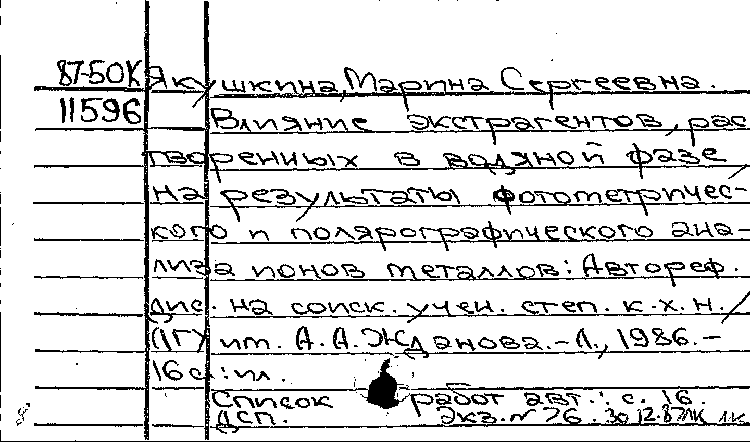 87-50К Якушкина, Марина Сергеевна.
11596 Влияние экстрагентов, рас
творенных в водяной фазе
на результаты фотометричес-
кого и полярографического ана-
лиза ионов металлов: Автореф.
дис. на соиск. учен. степ. к.х.н. /
ЛГУ им. А.А.Жданова.-Л., 1986.-
16 с.: ил.
Список работ авт.: с. 16.
ДСП. Экз. № 76. 30.12.87